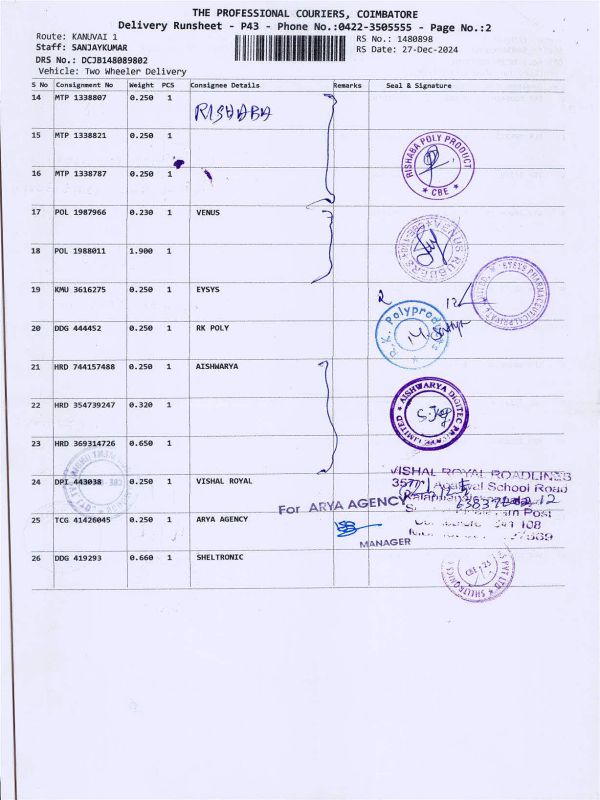 THE PROFESSIONAL COURIERS, COIMBATORE
Delivery Runsheet - P43 - Phone No.:0422-3505555 - Page No.:2
Route: KANUVAI 1
RS No.: 1480898
Staff: SANJAYKUMAR
RS Date: 27-Dec-2024
DRS No.: DCJB148089802
Vehicle: Two Wheeler Delivery
S No Consignment No Weight PCS Consignee Details Remarks Seal & Signature
14 MTP 1338807 0.250 1 RISHABA
15 MTP 1338821 0.250 1
RISHABA POLY PRODUCT
* CBE *
16 MTP 1338787 0.250 1
17 POL 1987966 0.230 1 VENUS
VENUS RUBBERS
18 POL 1988011 1.900 1
19 KMU 3616275 0.250 1 EYSYS
20 DDG 444452 0.250 1 RK POLY
R.K. Polyproducts
21 HRD 744157488 0.250 1 AISHWARYA
22 HRD 354739247 0.320 1
AISHWARYA DIGITEC LIMITED
23 HRD 369314726 0.650 1
24 DPI 443038 0.250 1 VISHAL ROYAL
VISHAL ROYAL ROADLINES
School Road
Post
25 TCG 41426045 0.250 1 ARYA AGENCY
For ARYA AGENCY
MANAGER
26 DDG 419293 0.660 1 SHELTRONIC